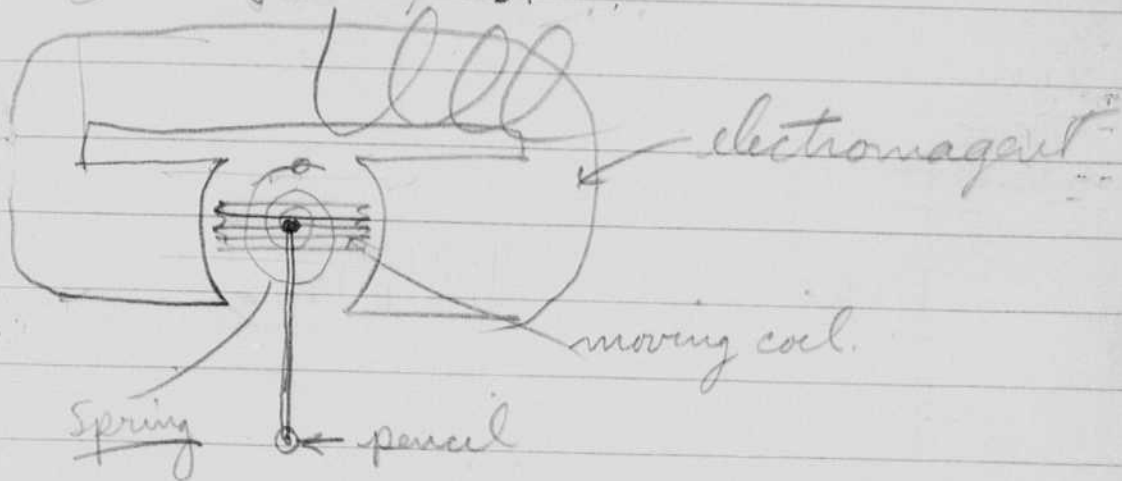 electromagent
moving coil.
Spring
pencil